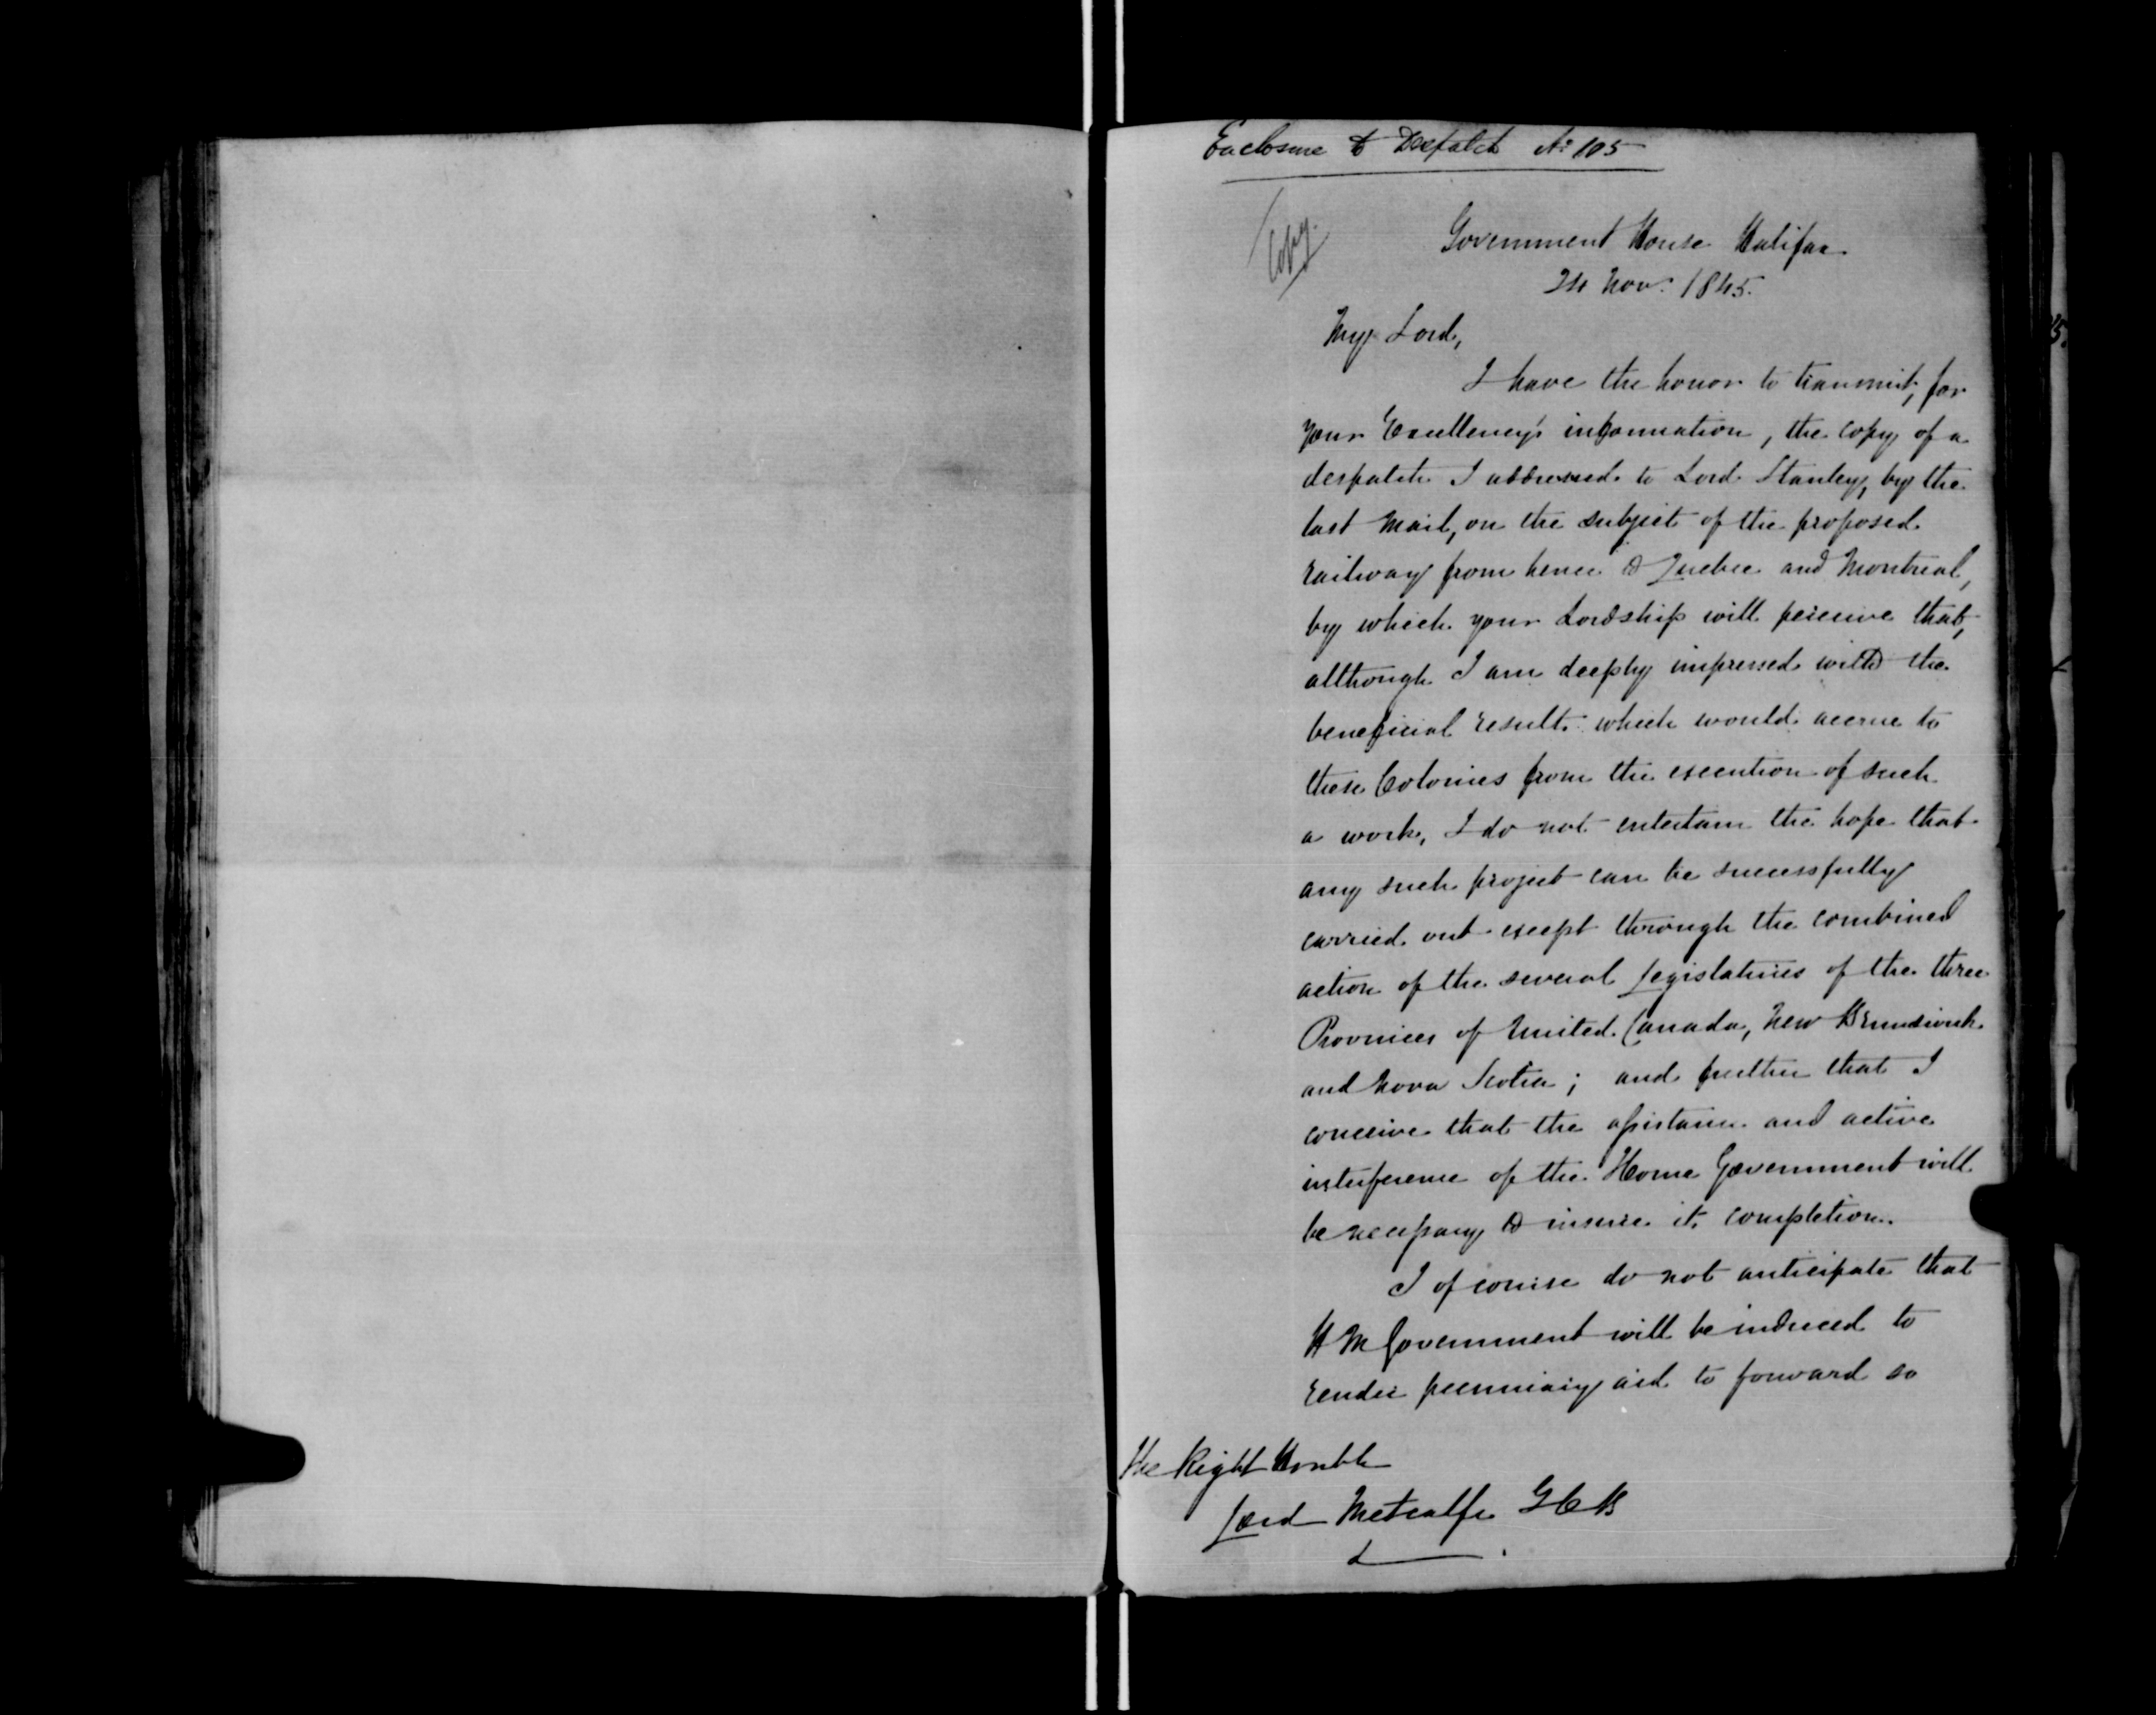 Enclosure to Despatch No 105
Copy.
Government House Halifax
24 Nov. 1845.
My Lord,
I have the honor to transmit, for
your Excellency's information, the copy of a
despatch I addressed to Lord Stanley, by the
last Mail, on the subject of the proposed
railway from hence to Quebec and Montreal,
by which your Lordship will perceive that,
although I am deeply impressed with the
beneficial results which would accrue to
these Colonies from the execution of such
a work, I do not entertain the hope that
any such project can be successfully
carried out except through the combined
action of the several Legislatures of the three
Provinces of United Canada, New Brunswick
and Nova Scotia; and further that I
conceive that the assistance and active
interference of the Home Government will
be necessary to insure its completion.
I of course do not anticipate that
H M Government will be induced to
render pecuniary aid to forward so
The Right Honble
Lord Metcalfe G C B